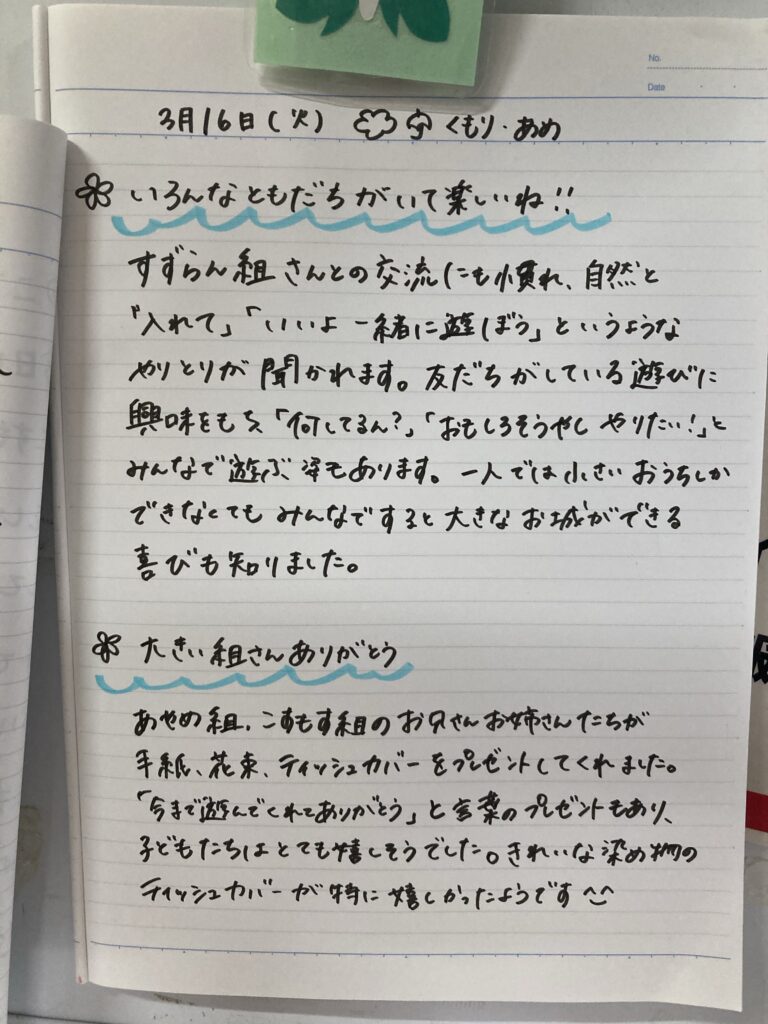 No.
Date
3月16日(火) くもり・あめ
いろんなともだちがいて楽しいね!!
すずらん組さんとの交流にも慣れ、自然と
「入れて」「いいよ 一緒に遊ぼう」というような
やりとりが聞かれます。友だちがしている遊びに
興味をもち、「何してるん?」「おもしろそうやし やりたい!」と
みんなで遊ぶ姿もあります。一人では小さいおうちしか
できなくてもみんなですると大きなお城ができる
喜びも知りました。
大きい組さんありがとう
あやめ組、こすもす組のお兄さんお姉さんたちが
手紙、花束、ティッシュカバーをプレゼントしてくれました。
「今まで遊んでくれてありがとう」と言葉のプレゼントもあり、
子どもたちはとても嬉しそうでした。きれいな染め物の
ティッシュカバーが特に嬉しかったようです